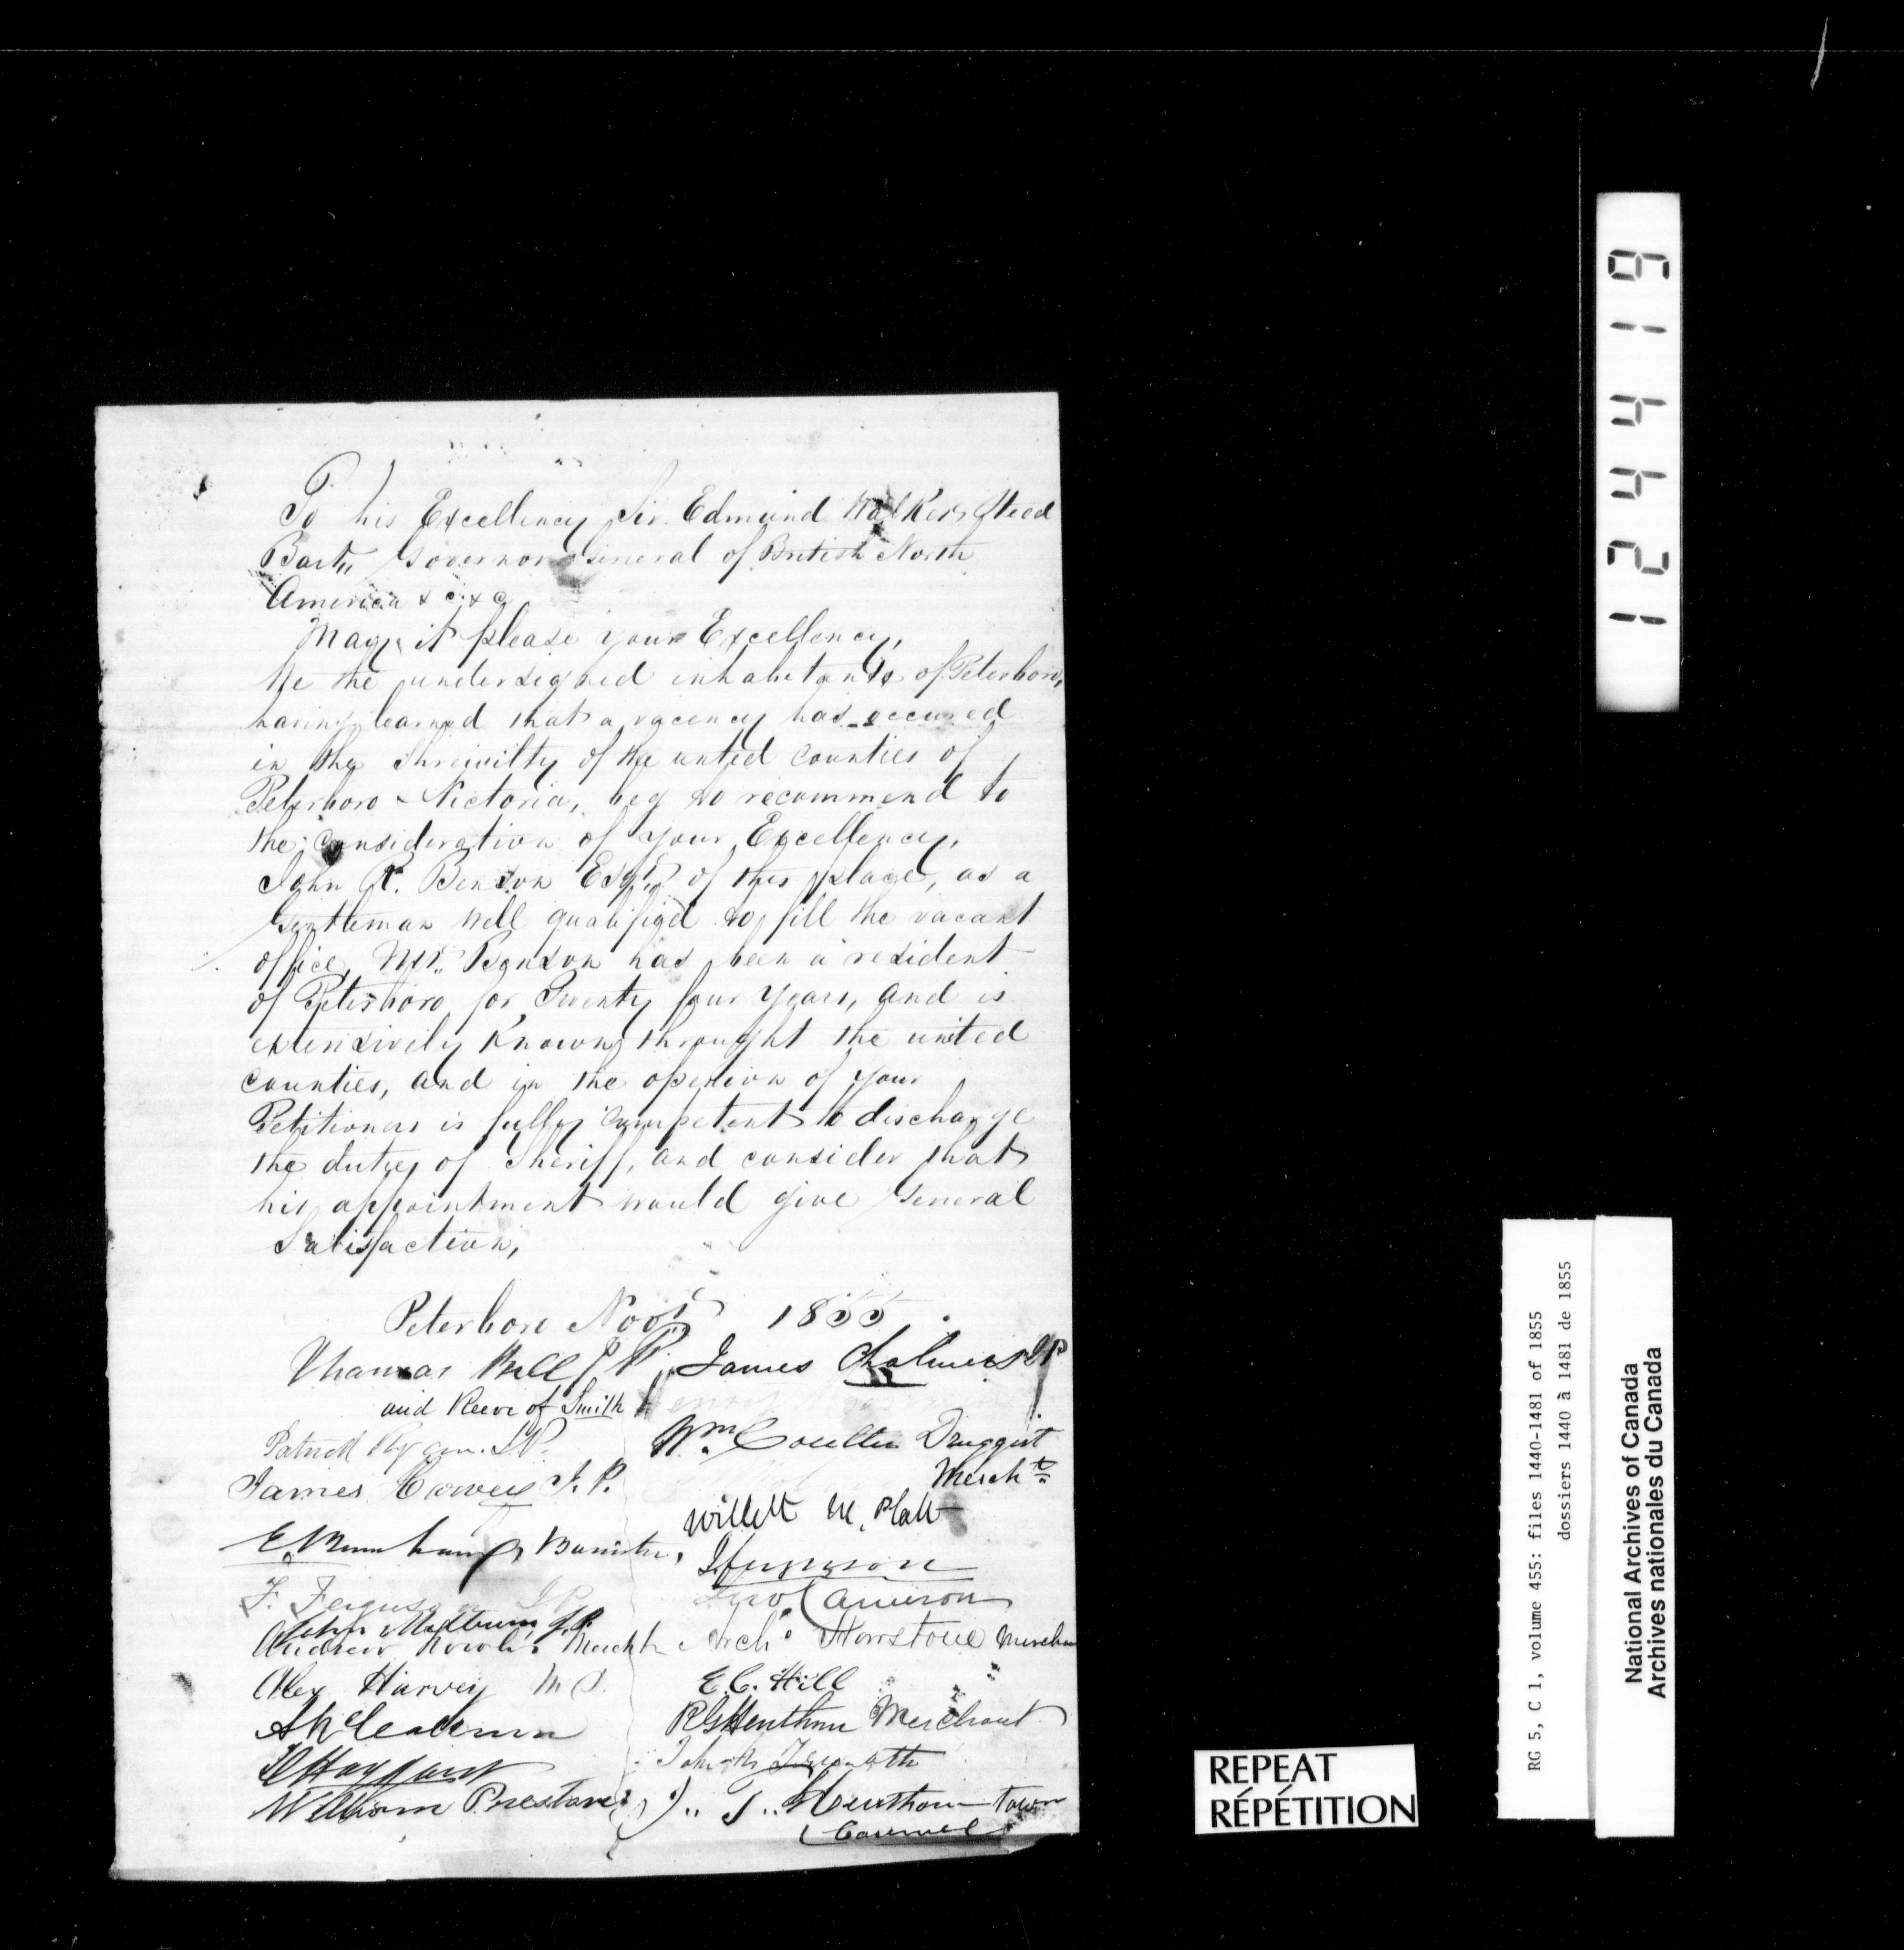 To his Excellency Sir Edmund Walker Head
Bart,, Governor General of British North
America & c & c
May it please your Excellency,
We the undersigned inhabitants of Peterboro,
having learned that a vacency has occured
in the Shreivilty of the unted counties of
Peterboro & Victoria, beg to recommend to
the consideration of your Excellency,
John R. Benson Esqr. of this place, as a
Gentleman well qualified to fill the vacant
office, Mr. Benson has been a resident
of Peterboro for Twenty four years, and is
extensively known throught the united
counties, and in the openion of your
Petitioners is fully competent to discharge
the duties of Sheriff, and consider that
his appointment would give General
Satisfaction,
Peterboro Novr 1855
Thomas Bell J P, James Chalmers JP
and Reeve of Smith
Patrick J.P. Wm. Coulter Druggist
James J. P. Mercht
Willett M. Platt
E Burnham, Barrister,
F. Ferguson J P Cameron
John Milburn J.P.
Andrew Mercht Archd. Merchant
Alex Harvey M D. E. C. Hill "
Merchant
William Town
Council
124419
RG 5, C 1, volume 455: files 1440-1481 of 1855
dossiers 1440 à 1481 de 1855
National Archives of Canada
Archives nationales du Canada
REPEAT
RÉPÉTITION